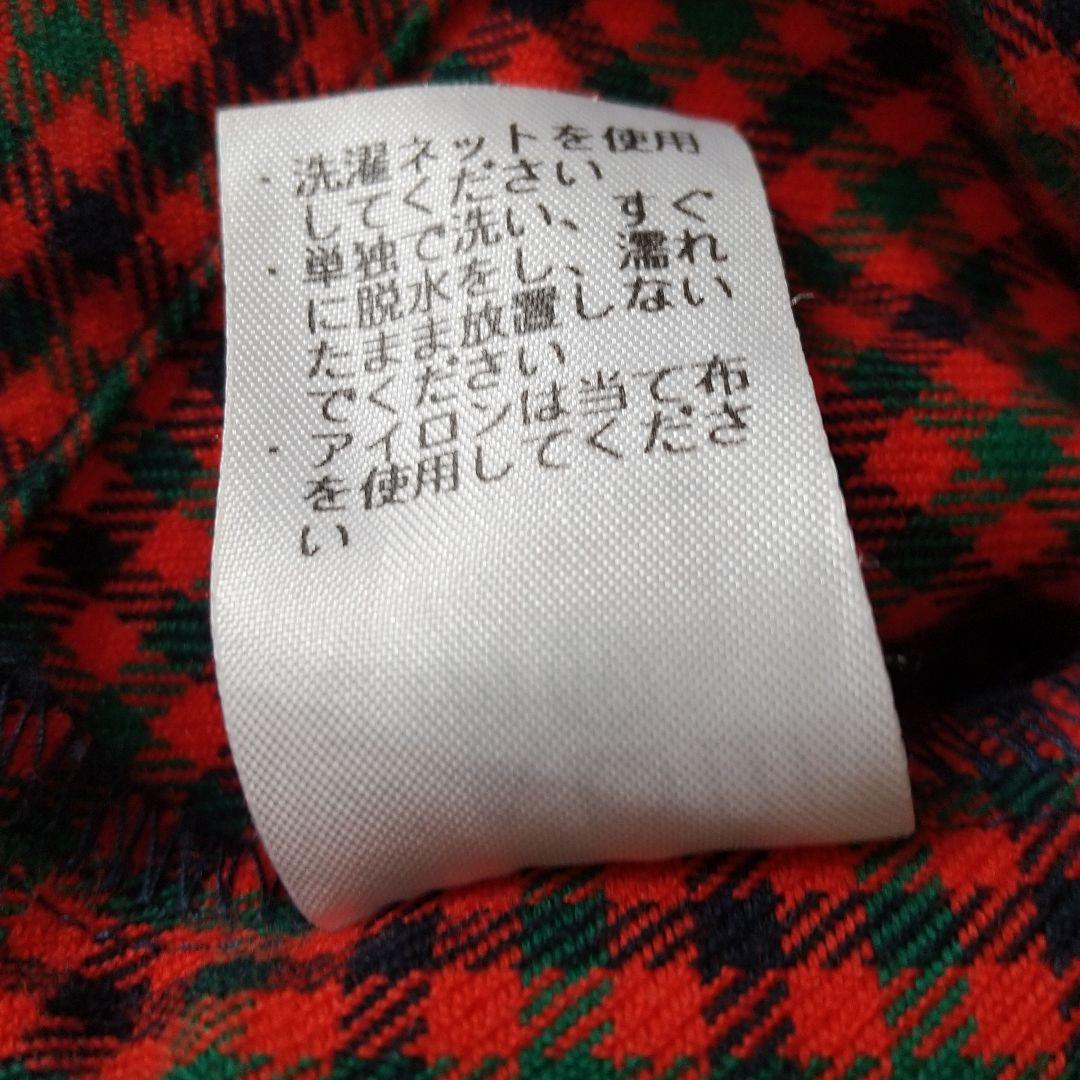 ・洗濯ネットを使用
してください
・単独で洗い、すぐ
に脱水をし、濡れ
たまま放置しない
でください
・アイロンは当て布
を使用してくださ
い